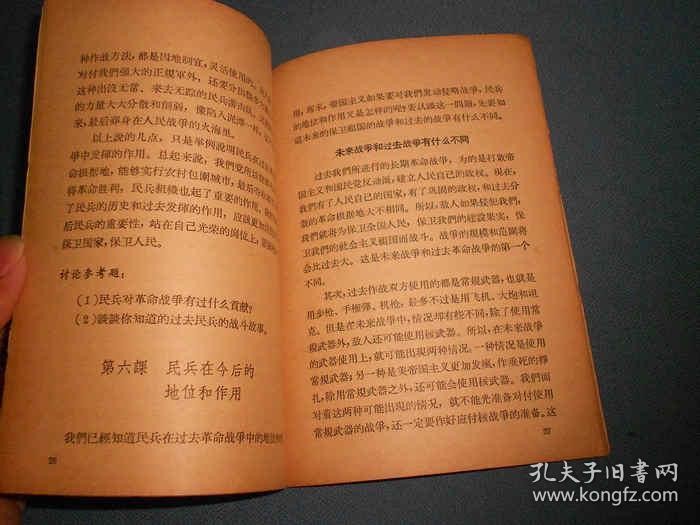 种作战方法，都是因地制宜，灵活使用的。
对付我們强大的正規軍外，还要分出
这种出没无常、来去无踪的民兵游击战，
的力量大大分散和削弱，像陷入泥潭一样，
来，最后葬身在人民战爭的火海里。
以上說的几点，只是举例說明民兵在过去
爭中发揮的作用。总起来說，我們党所
命根据地，能够实行农村包围城市，最后
得革命胜利，民兵組織也起了重要的作用。
了民兵的历史和过去发揮的作用，应該更加
后民兵的重要性，站在自己光荣的崗位上，
保卫国家，保卫人民。
討論参考題：
（1）民兵对革命战爭有过什么貢献？
（2）談談你知道的过去民兵的战斗故事。
第六課　民兵在今后的
地位和作用
我們已經知道民兵在过去革命战爭中的地位
26
用，将来，帝国主义如果要对我們发动侵略战爭，民兵
的地位和作用又是怎样的呢？要认識这一問題，先要知
道未来的保卫祖国的战爭和过去的战爭有什么不同。
未来战爭和过去战爭有什么不同
过去我們所进行的长期革命战爭，为的是打敗帝
国主义和国民党反动派，建立人民自己的政权。現在，
我們有了人民自己的国家，有了巩固的政权，和过去分
散的革命根据地大不相同。所以，敌人如果侵犯我們，
我們就将为保卫全国人民，保卫我們的建設果实，保
卫我們的社会主义祖国而战斗。战爭的規模和范圍将
会比过去大。这是未来战爭和过去革命战爭的第一个
不同。
其次，过去作战双方使用的都是常規武器，也就是
用步枪、手榴彈、机枪，最多不过是用飞机、大炮和坦
克。但是在未来战爭中，情况却有些不同，除了使用常
規武器外，敌人还可能使用核武器。所以，在未来战爭
的武器使用上，就可能出現两种情况。一种情况是使用
常規武器；另一种是美帝国主义更加发瘋，作垂死的掙
扎，除用常規武器之外，还可能会使用核武器。我們面
对着这两种可能出現的情况，就不能光准备对付使用
常規武器的战爭，还一定要作好应付核战爭的准备。这
27
孔夫子旧书网
www.kongfz.com